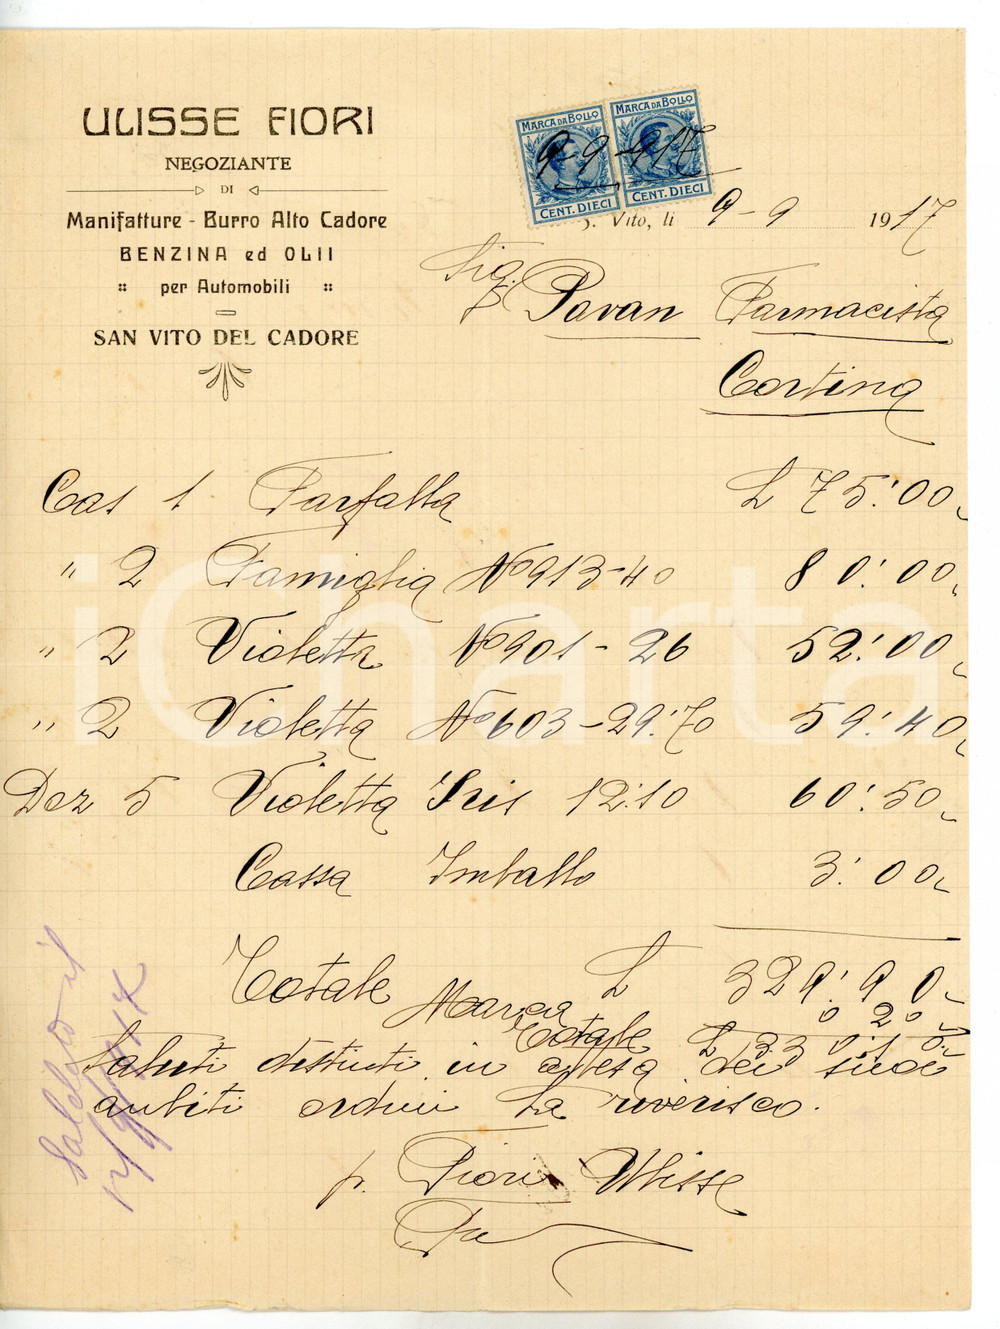 ULISSE FIORI
NEGOZIANTE
DI
Manifatture - Burro Alto Cadore
BENZINA ed OLII
per Automobili
SAN VITO DEL CADORE
MARCA DA BOLLO MARCA DA BOLLO
9-9-917
CENT. DIECI CENT. DIECI
S. Vito, li 9-9 1917
Sig.
Pavan Farmacista
Cortina
Cas 1 Farfalla L 75:00
" 2 Famiglia No 913-40 80:00
" 2 Violetta No 901-26 52:00
" 2 Violetta No 603-29:70 59:40
Doz 5 Violetta Iris 12:10 60:50
Cassa Imballo 3:00
Totale L 329:90
Marca 0 20
Totale L 330:10
Saluti distinti in attesa dei suoi
ambiti ordini La riverisco.
p. Fiori Ulisse
Saldato il
12/9/917
iCharta